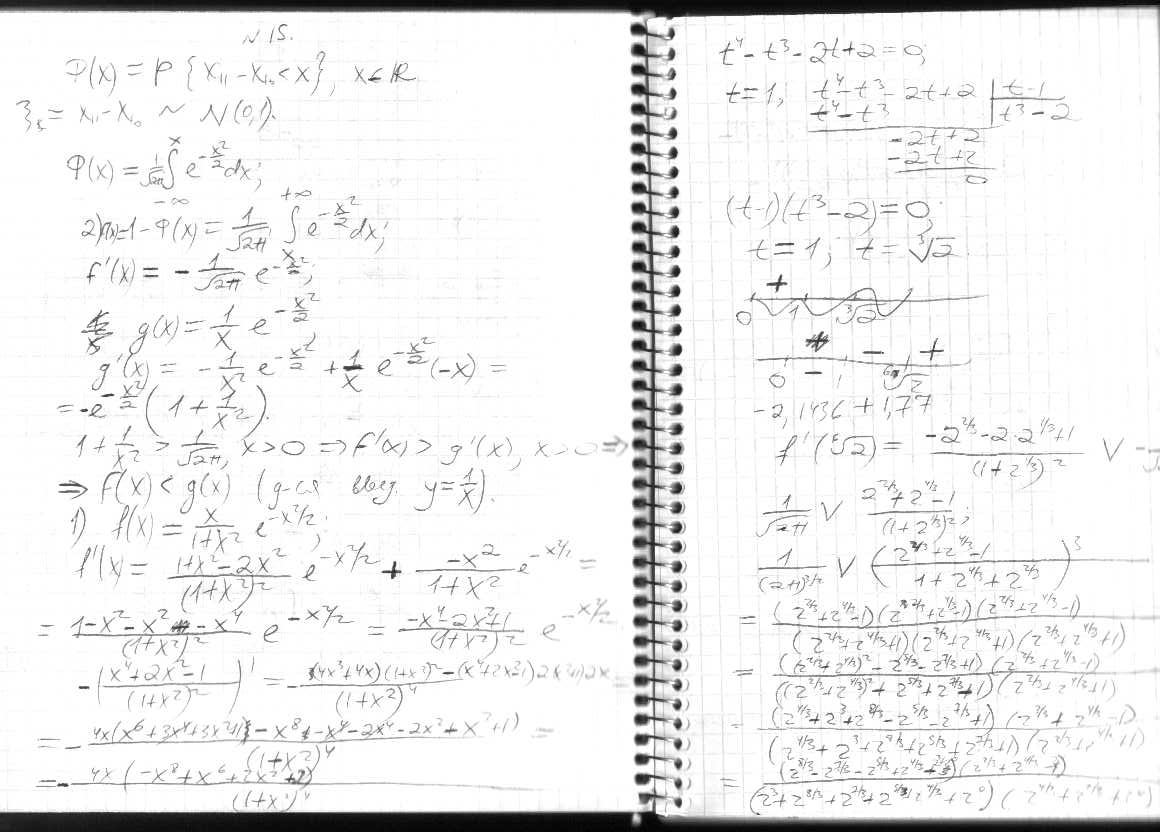 N 15.
Φ(x) = P {x₁₁ - x₁₀ < x}, x ∈ ℝ
ξₖ = x₁₁ - x₁₀ ~ N(0,1).
Φ(x) = 1/√2π ∫_{-∞}^{x} e^{-x²/2} dx;
2) f(x)=1-Φ(x) = 1/√2π ∫_{x}^{+∞} e^{-x²/2} dx;
f'(x) = - 1/√2π e^{-x²/2};
g(x) = 1/x e^{-x²/2};
g'(x) = - 1/x² e^{-x²/2} + 1/x e^{-x²/2} (-x) =
= -e^{-x²/2} (1 + 1/x²).
1 + 1/x² > 1/√2π, x > 0 ⇒ f'(x) > g'(x), x > 0 ⇒
⇒ f(x) < g(x) (y = 1/x).
1) f(x) = x/(1+x²) e^{-x²/2};
f'(x) = (1+x²-2x²)/(1+x²)² e^{-x²/2} + -x²/(1+x²) e^{-x²/2} =
= (1-x²-x²-x⁴)/(1+x²)² e^{-x²/2} = (-x⁴-2x²+1)/(1+x²)² e^{-x²/2}
-((x⁴+2x²-1)/(1+x²)²)' = - ((4x³+4x)(1+x²)² - (x⁴+2x²-1)2(x²+1)2x)/(1+x²)⁴ =
= - 4x(x⁶+3x⁴+3x²+1 - x⁴-2x⁴-2x²+x²+1)/(1+x²)⁴ =
= - 4x(-x⁸+x⁶+2x²+2)/(1+x²)⁴
t⁴ - t³ - 2t + 2 = 0;
t=1, t⁴-t³-2t+2 | t-1
t⁴-t³ t³-2
-2t+2
-2t+2
0
(t-1)(t³-2) = 0;
t = 1; t = ∛2
+
0 1 ∛2
- +
0 - 1 ⁶√2
-2,1436 + 1,77
f'(⁶√2) = (-2^{2/3} - 2·2^{1/3} + 1)/(1+2^{1/3})² ∨
1/√2π ∨ (2^{2/3} + 2^{4/3} - 1)/(1+2^{1/3})²;
1/(2π)^{3/2} ∨ ((2^{2/3} + 2^{4/3} - 1)/(1 + 2^{4/3} + 2^{2/3}))³
= (2^{2/3}+2^{4/3}-1)(2^{2/3}+2^{4/3}-1)(2^{2/3}+2^{4/3}-1)/(2^{2/3}+2^{4/3}+1)(2^{2/3}+2^{4/3}+1)(2^{2/3}+2^{4/3}+1)
= ((2^{2/3}+2^{4/3})² - 2^{5/3} - 2^{7/3} + 1)(2^{2/3}+2^{4/3}-1)/((2^{2/3}+2^{4/3})² + 2^{5/3} + 2^{7/3} + 1)(2^{2/3}+2^{4/3}+1)
= (2^{4/3}+2³+2^{8/3}-2^{5/3}-2^{7/3}+1)(2^{2/3}+2^{4/3}-1)/(2^{4/3}+2³+2^{8/3}+2^{5/3}+2^{7/3}+1)(2^{2/3}+2^{4/3}+1)